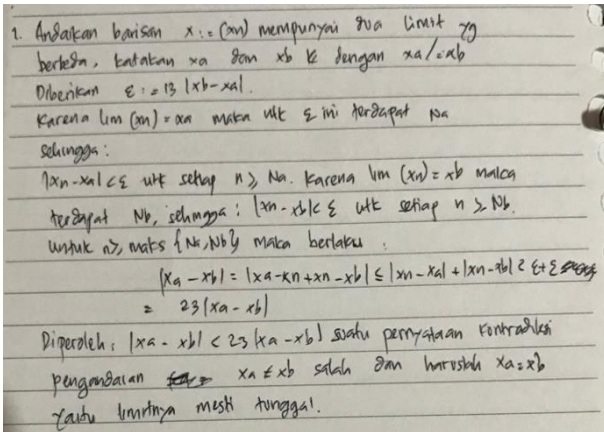 1. Andaikan barisan x := (xn) mempunyai dua limit yg
berbeda, katakan xa dan xb dengan xa /= xb
Diberikan ε := 13 |xb-xa|.
Karena lim (xn) = xa maka utk ε ini terdapat Na
sehingga :
|xn-xa| < ε utk setiap n ≥ Na. Karena lim (xn) = xb maka
terdapat Nb, sehingga : |xn-xb| < ε utk setiap n ≥ Nb.
Untuk n ≥ maks {Na, Nb} maka berlaku :
|xa-xb| = |xa-xn+xn-xb| ≤ |xn-xa| + |xn-xb| < ε+ε
= 23 |xa-xb|
Diperoleh : |xa-xb| < 23 |xa-xb| suatu pernyataan kontradiksi
pengandaian xa ≠ xb salah dan haruslah xa = xb
yaitu limitnya mesti tunggal.